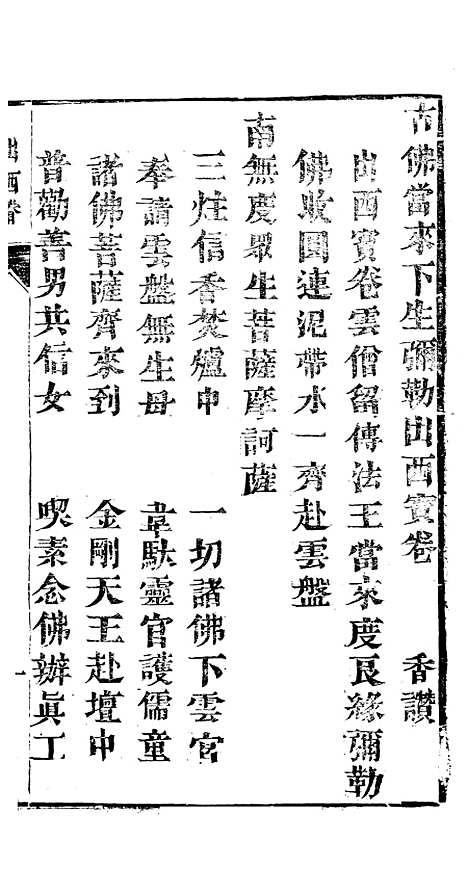 古佛當來下生彌勒出西寶卷　香讚
出西寶卷雲僧留傳法王當來度良緣彌勒
佛收圓連泥帶水一齊赴雲盤
南無度眾生菩薩摩訶薩
三炷信香焚爐中　一切諸佛下雲宮
奉請雲盤無生母　韋馱靈官護儒童
諸佛菩薩齊來到　金剛天王赴壇中
普勸善男共信女　喫素念佛辦眞工
出西卷
一